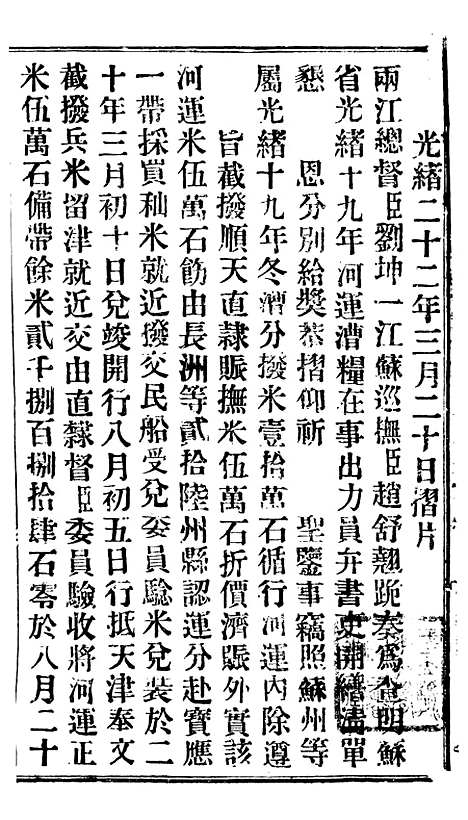 光緒二十二年三月二十日摺片
兩江總督臣劉坤一江蘇巡撫臣趙舒翹跪奏爲查明蘇
省光緒十九年河運漕糧在事出力員弁書吏開繕淸單
懇　恩分別給獎恭摺仰祈　聖鑒事竊照蘇州等
屬光緒十九年冬漕分撥米壹拾萬石循行河運內除遵
旨截撥順天直隸賑撫米伍萬石折價濟賑外實該
河運米伍萬石飭由長洲等貳拾陸州縣認運分赴寶應
一帶採買秈米就近撥交民船受兌委員驗米兌裝於二
十年三月初十日兌竣開行八月初五日行抵天津奉文
截撥兵米留津就近交由直隸督臣委員驗收將河運正
米伍萬石備帶餘米貳千捌百捌拾肆石零於八月二十